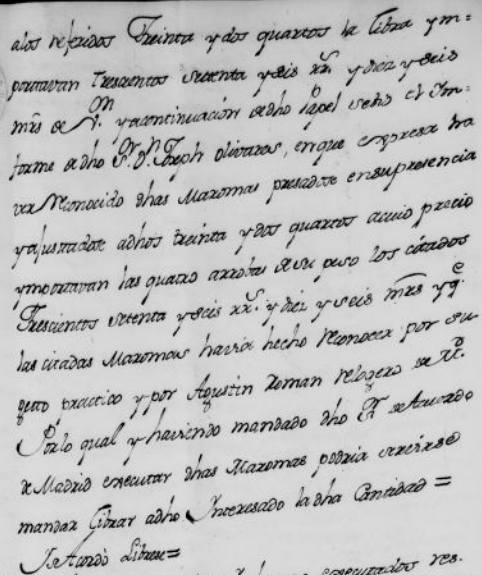 alos referidos Treinta y dos quartos la libra y im=
portavan Trescientos setenta y seis rrs. y diez y seis
mrs de Vn. y acontinuacion de dho Papel se dio el In=
forme de dho Sr. Dn. Joseph Olivares, en que expresa ha
ver reconocido dhas Maromas pesadose en su presencia
y ajustadose adhos treinta y dos quartos a cuio precio
ymportavan las quatro arrobas de su peso los citados
Trescientos setenta y seis rrs. y diez y seis mrs y qe.
las citadas Maromas havia hecho reconocer por su
geto practico y por Agustin Roman relogero de
Por lo qual y haviendo mandado dho Acuerdo
de Madrid executar dhas Maromas podria servirse
mandar librar adho Interesado la dha Cantidad =
Se Acordó Librese=
executados res.